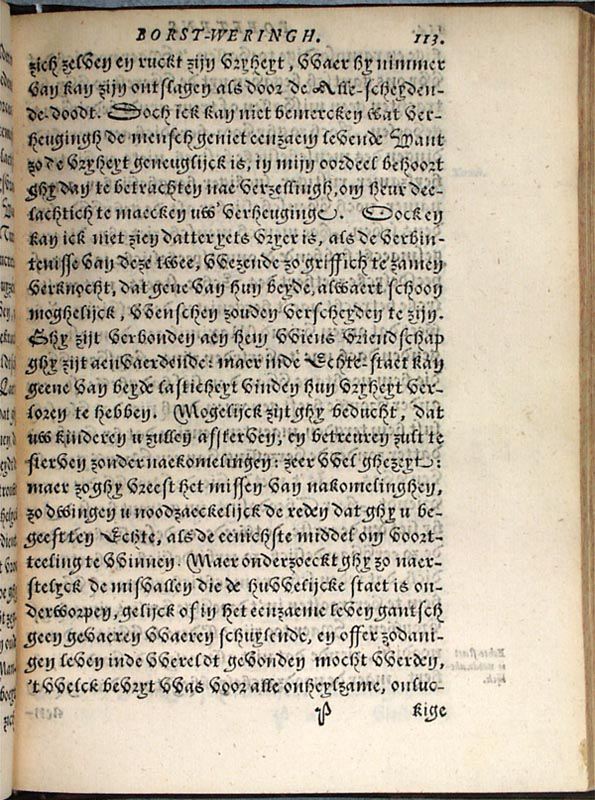 BORST-WERINGH. 113.
zich zelven en ruckt zijn vryheyt, vvaer hy nimmer
van kan zijn ontslagen als door de Alle-scheyden-
de-doodt. Doch ick kan niet bemercken wat ver-
heugingh de mensch geniet eenzaem levende. Want
zo de vryheyt geneuglijck is, in mijn oordeel behoort
ghy dan te betrachten nae verzellingh, om heur dee-
lachtich te maecken uw' verheuginge. Oock en
kan ick niet zien datter yets vryer is, als de verbin-
tenisse van deze twee, vvezende zo griffich te zamen
verknocht, dat gene van hun beyde, alwaert schoon
moghelijck, vvenschen zouden verscheyden te zijn.
Ghy zijt verbonden aen hem vviens vriendschap
ghy zijt aenvaerdende: maer inde Echte-staet kan
geene van beyde lasticheyt vinden hun vryheyt ver-
loren te hebben. Mogelijck zijt ghy beducht, dat
uw kinderen u zullen afsterven, en betreuren zult te
sterven zonder naekomelingen: zeer vvel ghezeyt:
maer zo ghy vreest het missen van nakomelinghen,
zo dwingen u noodzaeckelijck de reden dat ghy u be-
geeft ten Echte, als de eenichste middel om voort-
teeling te vvinnen. Maer onderzoeckt ghy zo naer-
stelyck de misvallen die de huvvelijcke staet is on-
derworpen, gelijck of in het eenzaeme leven gantsch
geen gevaeren vvaeren schuylende, en offer zodani-
gen leven inde vvereldt gevonden mocht vverden,
't vvelck bevryt vvas voor alle onheylzame, onluc-
P kige